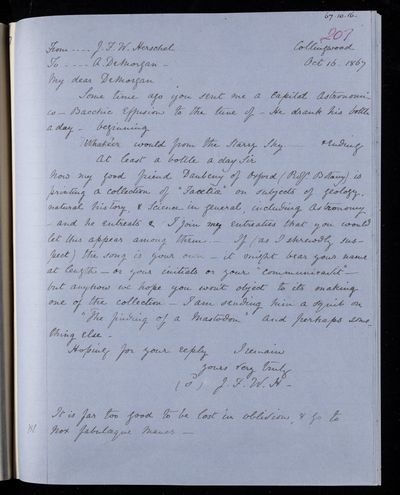 67.10.16.
207
From .... J. F. W. Herschel Collingwood
To .... A. DeMorgan - Oct 16. 1867
My dear DeMorgan
Some time ago you sent me a capital Astronomi-
co - Bacchic Effusion to the tune of - He drank his bottle
a day - beginning
Whate'er would from the Starry Sky - & Ending
At least a bottle a day Sir
Now my good friend Daubeny of Oxford (Proff Botany) is
printing a collection of "Facetiæ" on subjects of geology,
natural history, & Science in general, including Astronomy
- and he entreats & I join my entreaties that you would
let this appear among them - If (as I shrewdly sus-
pect) the song is your own - it might bear your name
at length - or your initials or your "communicavit" -
but anyhow we hope you won't object to its making
one of the collection - I am sending him a squib on
"The finding of a Mastodon" and perhaps some-
thing else -
Hoping for your reply I remain
yours very truly
J. F. W. H -
It is far too good to be lost in oblivion, & go to
Nox fabulaeque Manes -